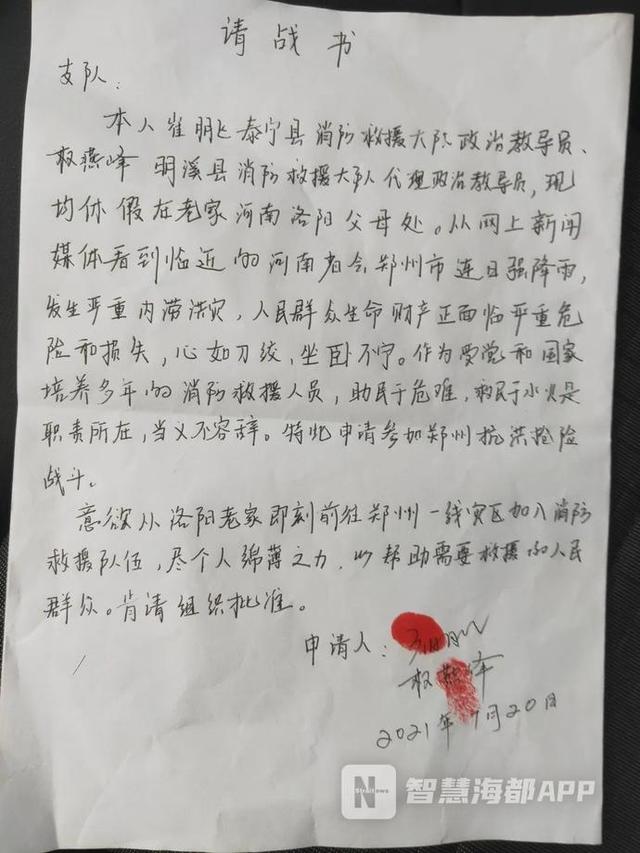 请战书
支队：
本人崔朋飞泰宁县消防救援大队政治教导员、
权燕峰 明溪县消防救援大队代理政治教导员，现
均休假在老家河南洛阳父母处。从网上新闻
媒体看到临近的河南省会郑州市连日强降雨，
发生严重内滞洪灾，人民群众生命财产正面临严重危
险和损失，心如刀绞，坐卧不宁。作为受党和国家
培养多年的消防救援人员，助民于危难，救民于水火是
职责所在，当义不容辞。特此申请参加郑州抗洪抢险
战斗。
意欲从洛阳老家即刻前往郑州一线灾区加入消防
救援队伍，尽个人绵薄之力，以帮助需要救援的人民
群众。肯请组织批准。
申请人：
权燕峰
2021年7月20日
N
Straitnews
智慧海都APP